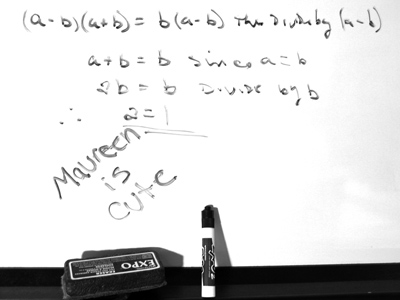 (a-b)(a+b) = b(a-b) Then Divide by (a-b)
a+b = b since a=b
2b = b Divide by b
∴ 2=1
Maureen
is
cute
EXPO